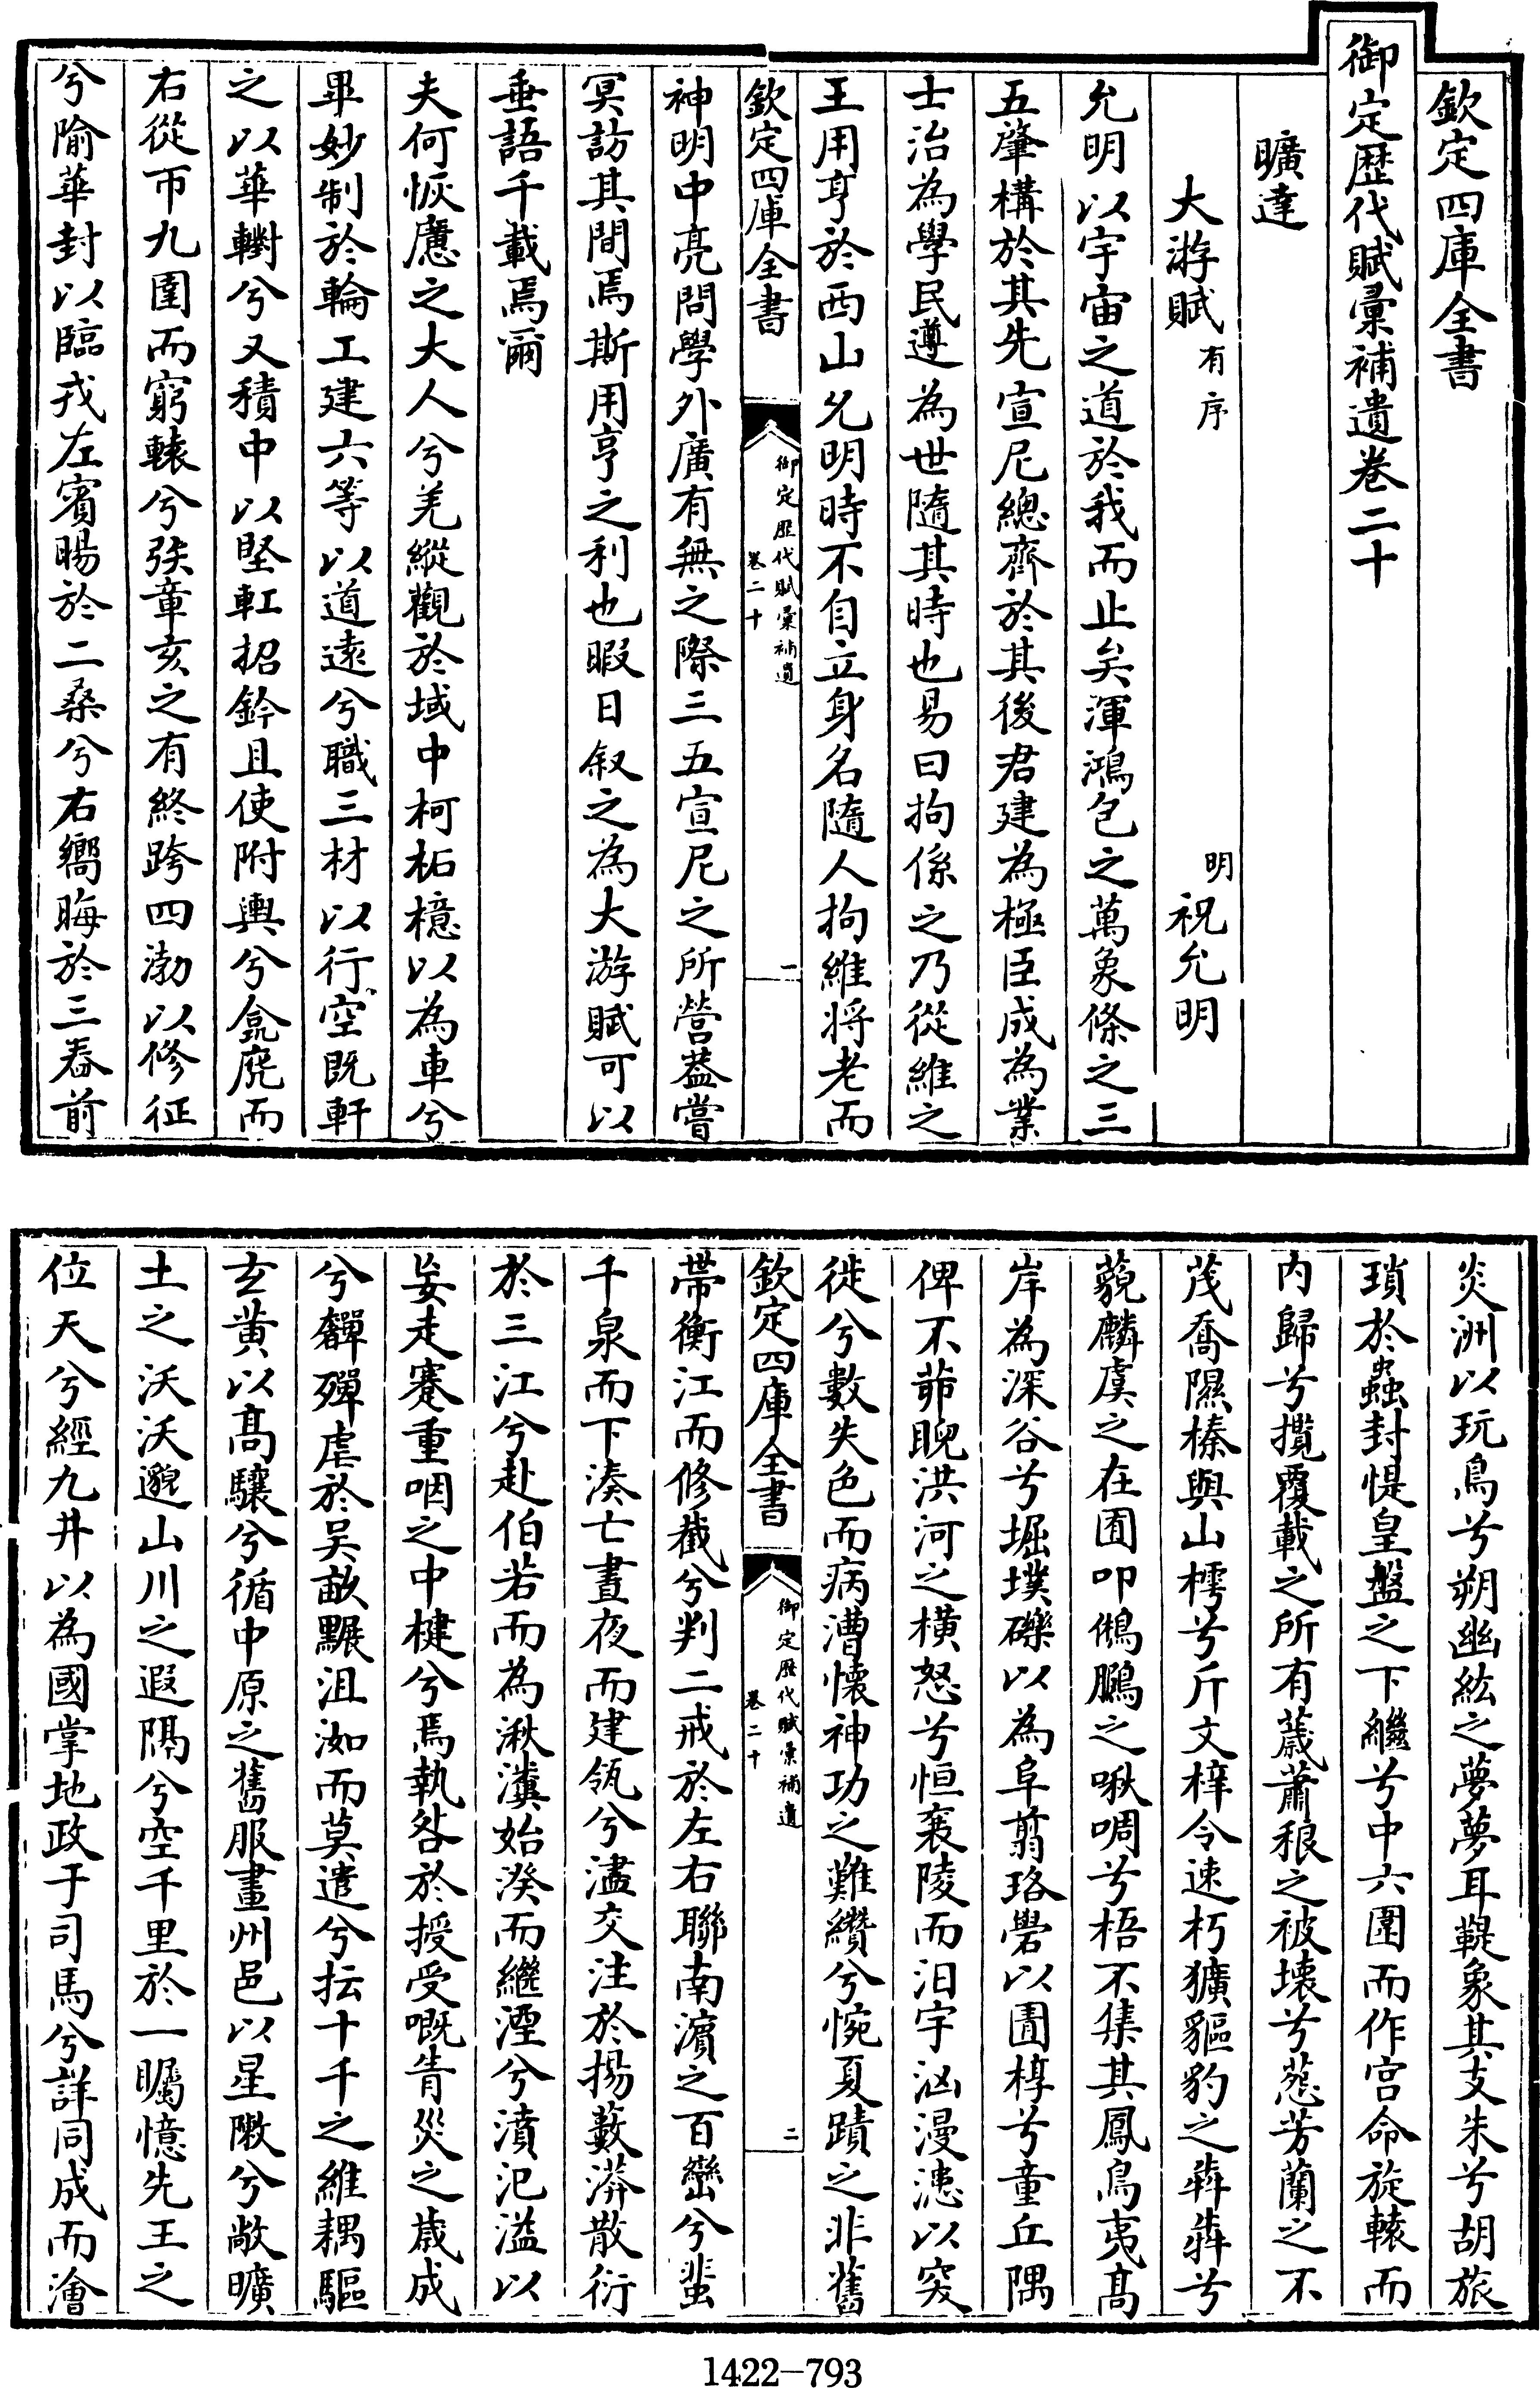 欽定四庫全書
御定歴代賦彙補遺卷二十
曠達
大游賦有序 明祝允明
允明以宇宙之道於我而止矣渾鴻包之萬象條之三
五肇構於其先宣尼總齊於其後君建為極臣成為業
士治為學民遵為世隨其時也易曰拘係之乃從維之
王用亨於西山允明時不自立身名隨人拘維將老而
欽定四庫全書
御定歴代賦彙補遺
卷二十
一
神明中亮問學外廣有無之際三五宣尼之所營葢嘗
冥訪其間焉斯用亨之利也暇日叙之為大游賦可以
垂語千載焉爾
夫何恢慮之大人兮羌縱觀於域中柯柘檍以為車兮
畢妙制於輪工建六等以道遠兮職三材以行空既軒
之以華轛兮又積中以堅軖招鈐且使附輿兮龛麂而
右從帀九圍而窮轅兮弢章亥之有終跨四渤以修征
兮隃華封以臨戎左賓暘於二桑兮右嚮晦於三舂前
炎洲以玩鳥兮朔幽紘之夢夢耳鞮象其支朱兮胡旅
瑣於蟲封惿皇盤之下繼兮中六圍而作宫命旋轅而
内歸兮攬覆載之所有葴蕭稂之被壊兮荵芳蘭之不
茂喬隰榛與山樗兮斤文梓令速朽獷貙豹之犇犇兮
藐麟虞之在囿叩鵂鵩之啾啁兮梧不集其鳳鳥夷髙
岸為深谷兮堀墣礫以為阜翦珞礐以圊椁兮童丘隅
俾不茆睨洪河之横怒兮恒襄陵而汨宇汹漫漶以突
徙兮數失色而病漕懷神功之難纘兮惋夏蹟之非舊
欽定四庫全書
御定歴代賦彙補遺
卷二十
二
帯衡江而修截兮判二戒於左右聯南濵之百巒兮蜚
千泉而下湊亡晝夜而建瓴兮濜交注於揚藪漭散衍
於三江兮赴伯若而為湫瀵始湀而繼湮兮濆氾溢以
妄走蹇重咽之中楗兮焉執咎於授受嘅眚災之歳成
兮𪏆殫虐於吴畝黰沮洳而莫遣兮抎十千之維耦驅
玄黄以髙驤兮循中原之舊服畫州邑以星陬兮敞曠
土之沃沃邈山川之遐隔兮空千里於一矚憶先王之
位天兮經九井以為國掌地政于司馬兮詳同成而澮
1422—793